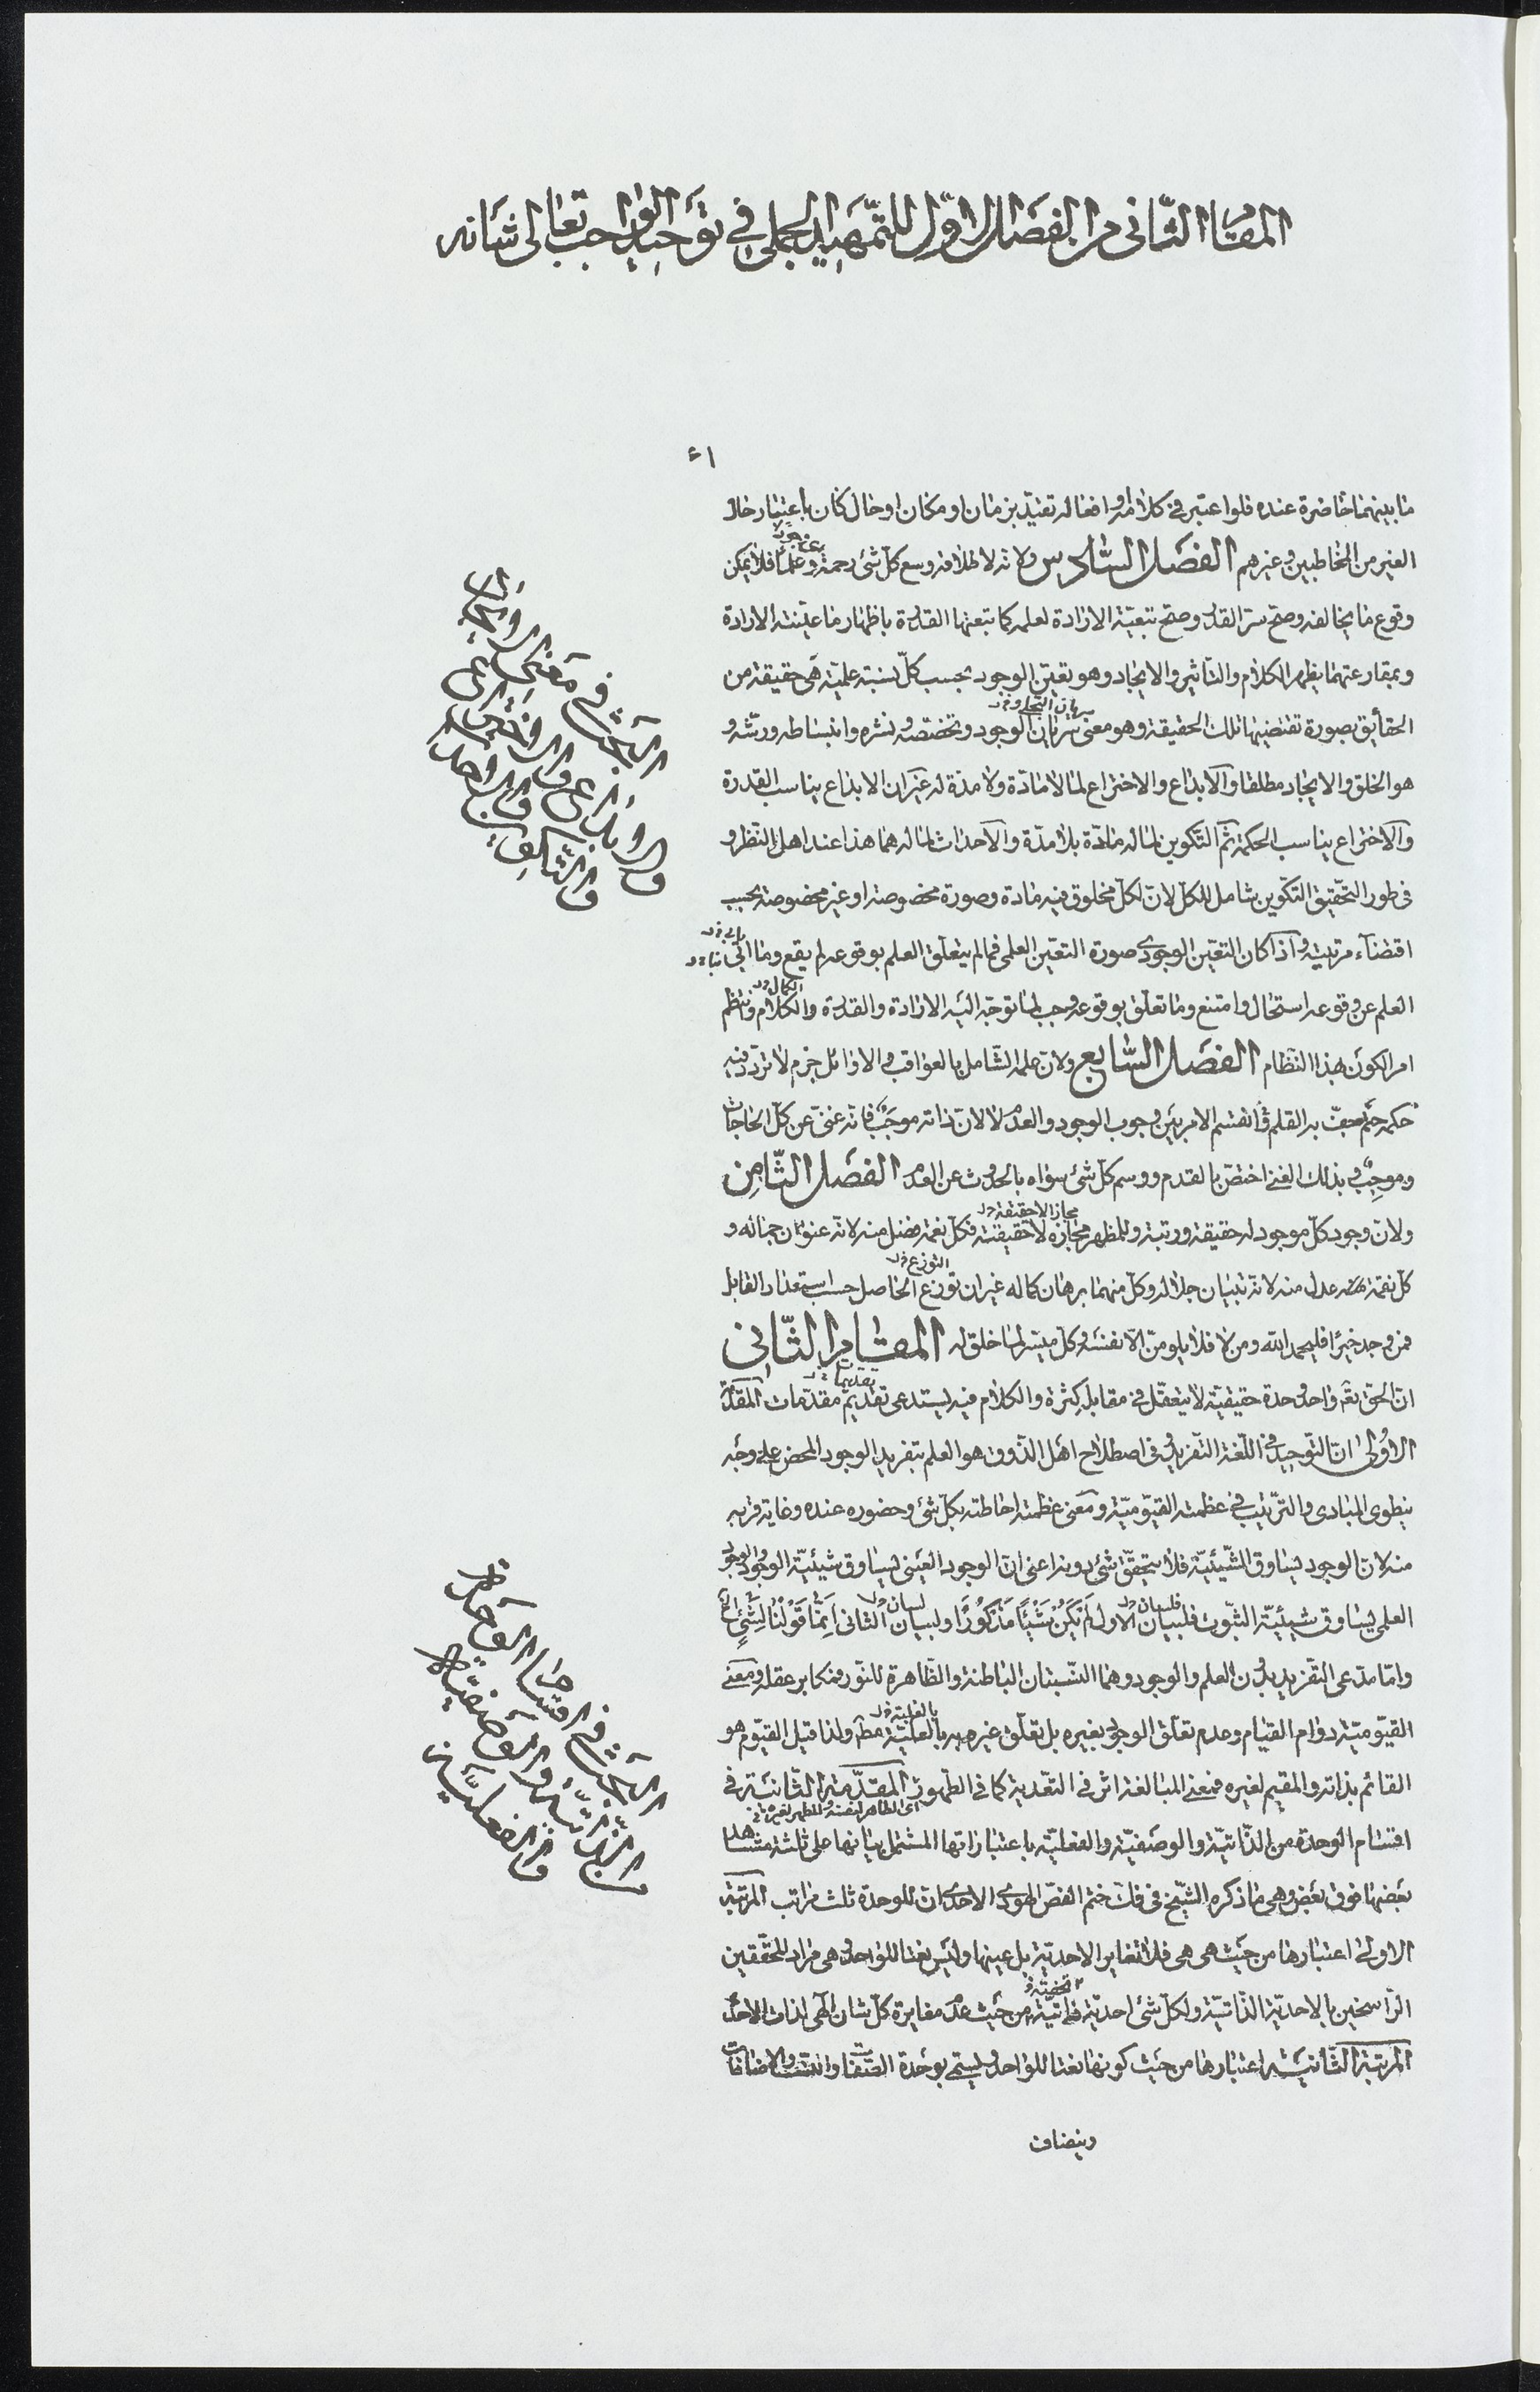 المقام الثانى من الفصل الاوّل للتمهيد الجملى فى توحيد الواجب تعالى شانه
٤١
ما بينهما حاضرة عنده فلو اعتبر فى كلامه او افعاله تقيّد بزمان او مكان او حال كان باعتبار حال
الغير من المخاطبين وغيرهم الفصل السّادس ولانّه لاطلاقه وسع كلّ شئ رحمة وعلما فلا يمكن
وقوع ما يخالفه وصحّ سرّ القدر وصحّ تبعيّة الارادة لعلمه كما تبعتها القدرة باظهار ما عيّنته الارادة
وبمقارعتهما يظهر الكلام والتّاثير والايجاد وهو تعيّن الوجود بحسب كلّ نسبة علميّة هى حقيقة من
الحقايق بصورة تقتضيها تلك الحقيقة وهو معنى سريان الوجود وتخصّصه ونشره وانبساطه ورشّه و
هو الخلق والايجاد مطلقا والابداع والاختراع لما لا مادّة ولا مدّة له غير ان الابداع يناسب القدرة
والاختراع يناسب الحكمة ثمّ التّكوين لما له مادّة بلا مدّة والاحداث لما له هما هذا عند اهل النّظر و
فى طور التّحقيق التكوين شامل للكلّ لانّ لكلّ مخلوق فيه مادة وصورة مخصوصة او غير مخصوصة بحسب
اقتضاء مرتبته واذا كان التعيّن الوجودى صورة التعيّن العلمى فما لم يتعلّق العلم بوقوعه لم يقع وما ابى
العلم عن وقوعه استحال وامتنع وما تعلّق بوقوعه وجب لما توجّه اليه الارادة والقدرة والكلام وانتظم
امر الكون بهذا النّظام الفصل السّابع ولانّ علمه الشّامل بالعواقب والاوائل جزم لا تردّد فيه
حكمه حتم جفّ به القلم فانقسم الامر بين وجوب الوجود والعدم لا لانّ ذاته موجَب فانّه غنىّ عن كلّ الحاجات
وموجِب وبذلك الغنى اختصّ بالقدم ووسم كلّ شئ سواه بالحدوث عن العدم الفصل الثّامن
ولانّ وجود كلّ موجود له حقيقة ورتبة وللمظهر مجازه لا حقيقته فكلّ نعمة فضل منه لانّه عنوان جماله و
كلّ نقمة عدل منه لانّه تبيان جلاله وكلّ منهما برهان كماله غير ان توزع الحاصل حسب استعداد القابل
فمن وجد خيرا فليحمد الله ومن لا فلا يلومنّ الّا نفسه وكلّ ميسّر لما خلق له المقام الثّانى
انّ الحقّ تعّ واحد وحدة حقيقيّة لا يتعقّل فى مقابله كثرة والكلام فيه يستدعى تقديم مقدّمات المقدّمة
الاولى انّ التّوحيد فى اللّغة التّفريد وفى اصطلاح اهل الذّوق هو العلم بتفريد الوجود المحض على وجه
ينطوى المبادى والترتيب فى عظمته القيّوميّة ومعنى عظمته احاطته بكلّ شئ وحضوره عنده وغاية قربه
منه لانّ الوجود يساوق الشّيئيّة فلا يتحقّق شئ بدونه اعنى انّ الوجود العينى يساوق شيئيّة الوجود والوجود
العلمى يساوق شيئيّة الثبوت فلبيان الاول لم يكن شيئا مذكورا ولبيان الثانى انّما قولنا لشئ
وامّا مدعى التّفريد بدون العلم والوجود وهما النّسبتان الباطنة والظّاهرة للنّور فمكابر عقله ومعنى
القيّوميّة دوام القيام وعدم تعلّق الوجود بغيره بل تعلّق غيره به بالعليّة مطّ ولذا قيل القيّوم هو
القائم بذاته والمقيم لغيره فمعنى المبالغة اثر فى التّعدية كما فى الطّهور المقدّمة الثّانية فى
اى الطاهر لنفسه والمطهر لغيره
اقسام الوحدة من الذّاتيّة والوصفيّة والفعليّة باعتباراتها المشتمل بيانها على ثلثة مشاهد
بعضها فوق بعض وهى ما ذكره الشّيخ فى فكّ ختم الفصّ الهودى الاحدى انّ للوحدة ثلث مراتب المرتبة
الاولى اعتبارها من حيث هى هى فلا تغاير الاحديّة بل عينها وليس نعتا للواحد وهى مراد المحقّقين
الرّاسخين بالاحديّة الذّاتيّة ولكلّ شئ احديّة ذاتيّة من حيث عدم مغايرة كلّ شان الهى لذات الاحد
المرتبة الثّانية اعتبارها من حيث كونها نعتا للواحد ويسمّى بوحدة الصّفات والنسب والاضافات
وينضاف
البحث فى معنى الايجاد
والابداع والاختراع
والتكوين والاحداث
البحث فى اقسام الوحدة
الذاتيّة والوصفيّة
والفعليّة